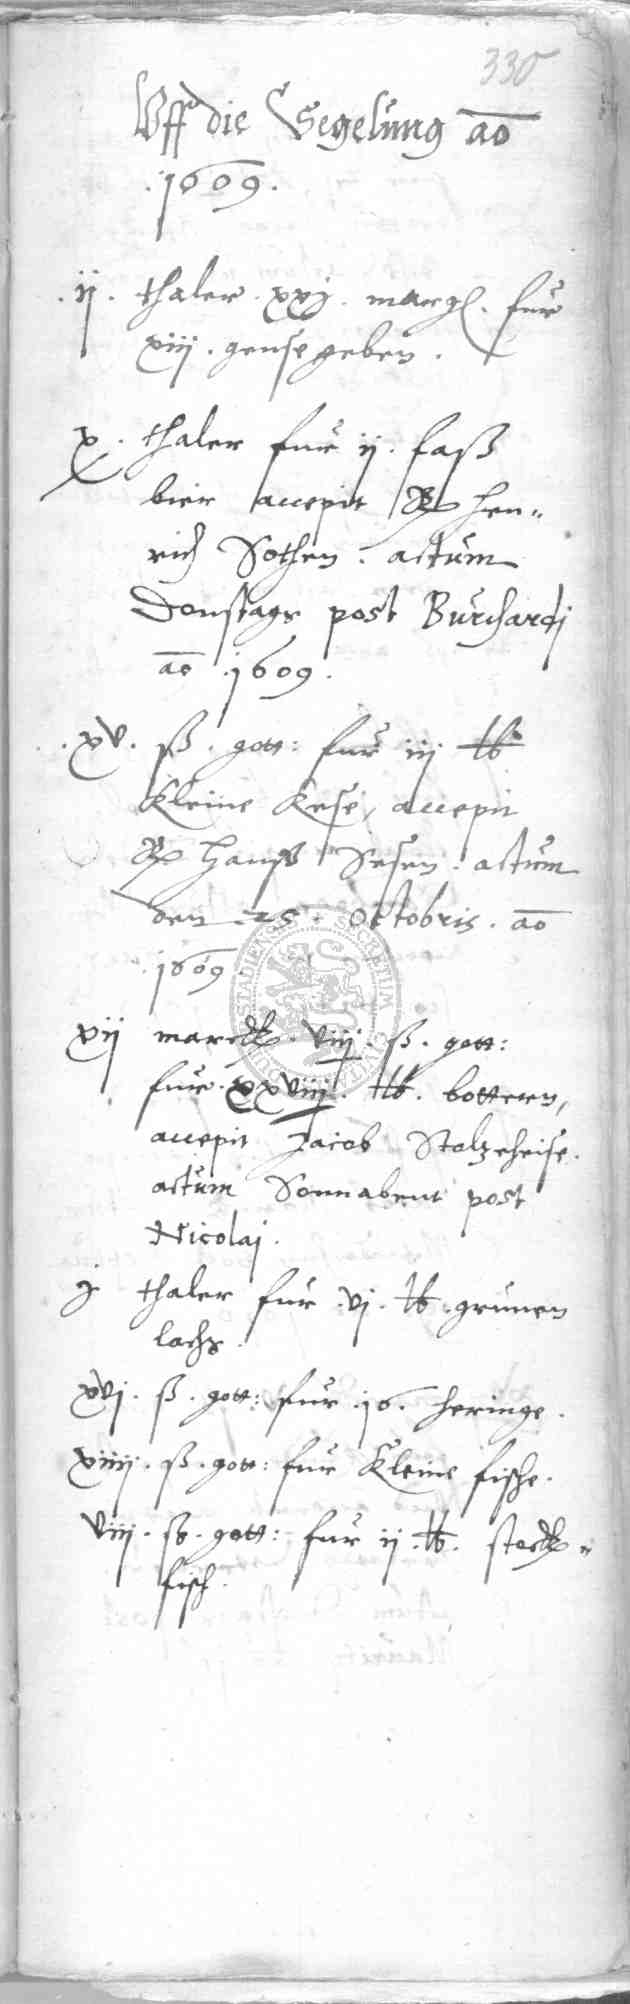 330
Uff die Segelung ao
.1609.
.ij. thaler .xxj. margl. fur
xiij. gense geben.
x. thaler fur ij. faß
bier accepit Hen-
rich Sothen. actum
Donstags post Burchardj
ao .1609.
.xv. ß. gott: fur iij lb
Kleine Kese, accepit
Hanß Sesen. actum
den 25. Octobris. ao
.1609.
xij marck. viij. ß. gott:
fur. xxviij. lb. bottern,
accepit Jacob Stolzeheise.
actum Sonnabent post
Nicolaj.
j thaler fur .vj. lb. grunen
lachs.
xvj. ß. gott: fur .16. heringe.
xiiij. ß. gott: fur Kleine fische.
viij. ß. gott: fur ij. lb. stock-
fisch.